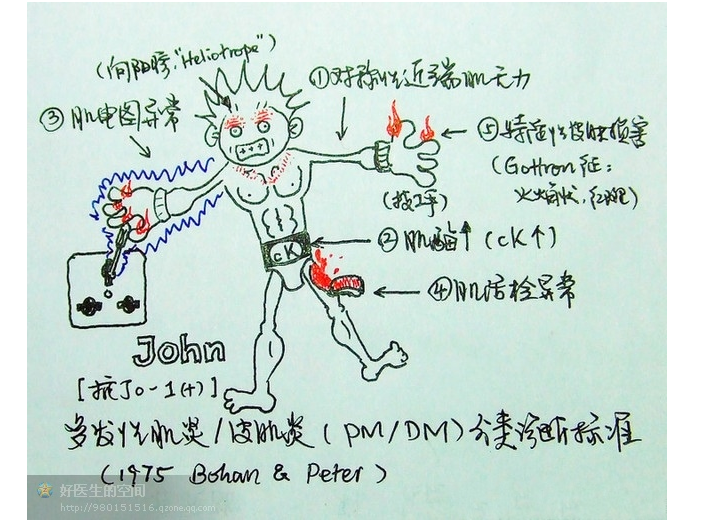 (向阳疹,"Heliotrope")
①对称性近端肌无力
③肌电图异常
⑤特征性皮肤损害
(Gottron征:
火焰状,红斑)
(技工手)
②肌酶↑(CK↑)
CK
④肌活检异常
John
[抗Jo-1(+)]
多发性肌炎/皮肌炎(PM/DM)分类诊断标准
(1975 Bohan & Peter)
好医生的空间
http://980151516.qzone.qq.com